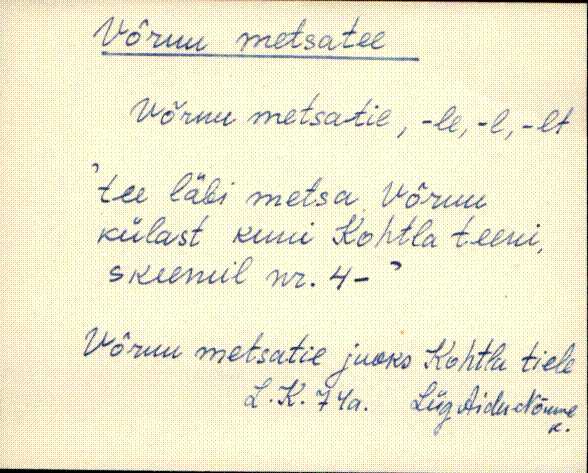 Võrnu metsatee
Võrnu metsatie, -le, -l, -lt
'tee läbi metsa Võrnu
külast kuni Kohtla teeni,
skeemil nr. 4-'
Võrnu metsatie juoks Kohtla tiele
L.K. 74a. Lüg Aidu-Nõmme
k.